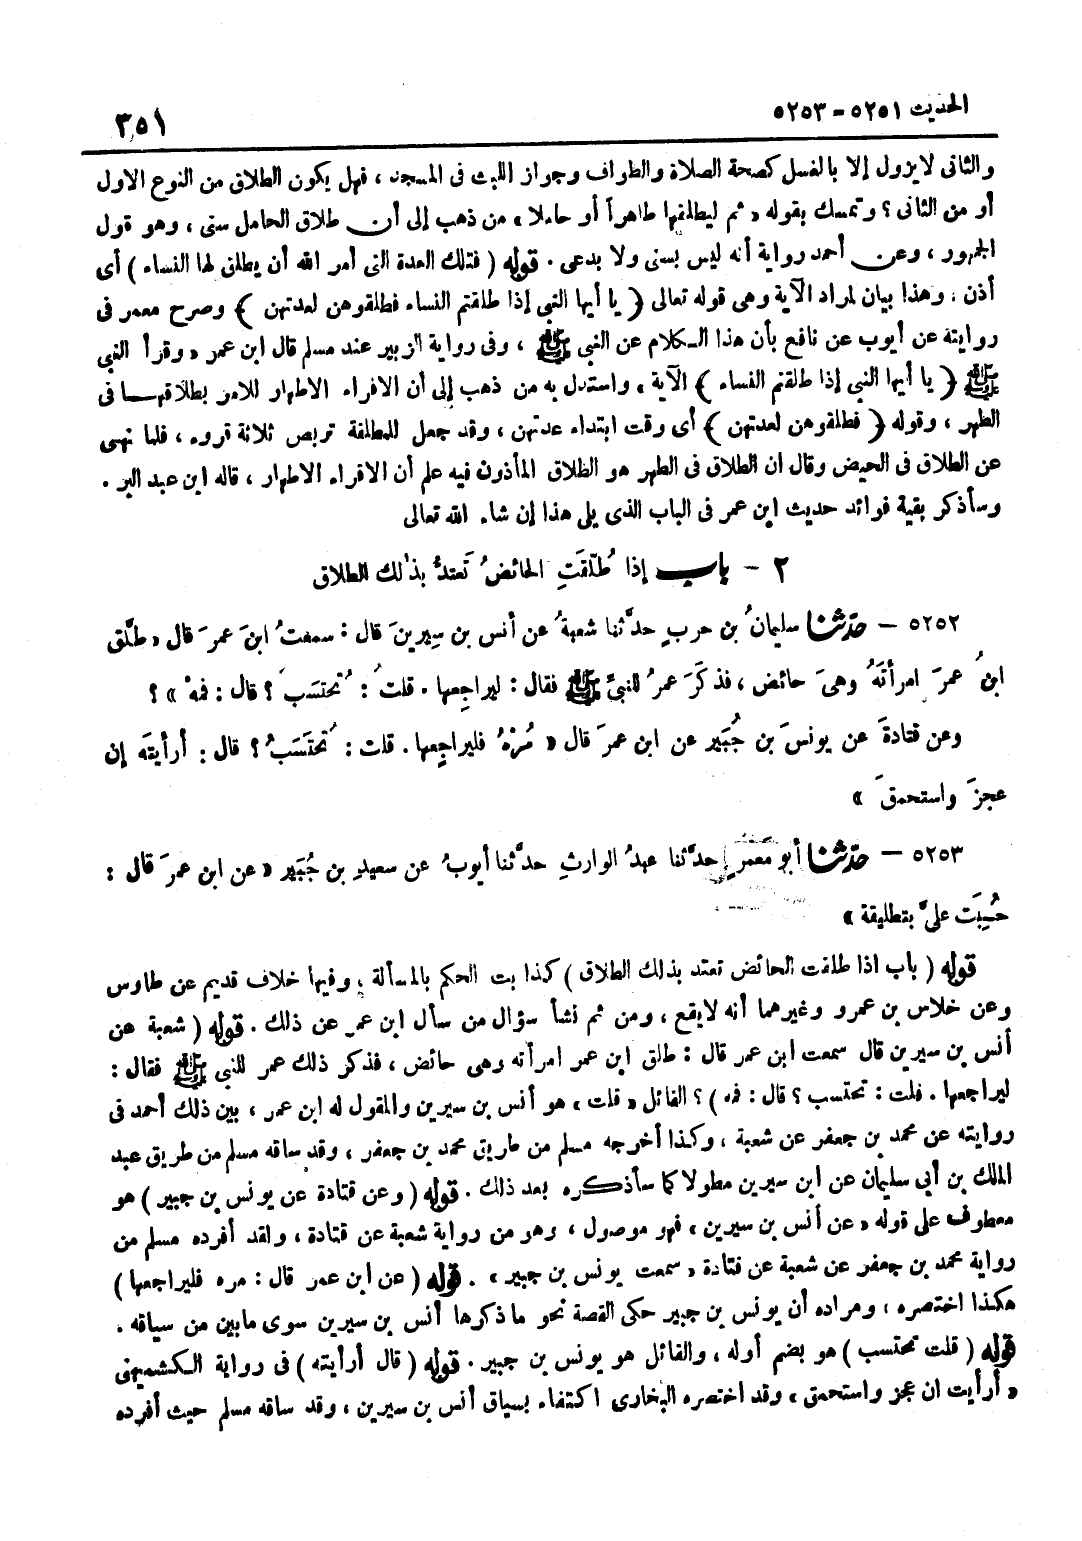 الحديث ٥٢٥١ - ٥٢٥٣
٣٥١
والثانى لايزول إلا بالغسل كصحة الصلاة والطواف وجواز اللبث فى المسجد ، فهل يكون الطلاق من النوع الاول
أو من الثانى ؟ وتمسك بقوله « ثم ليطلقها طاهراً أو حاملا » من ذهب إلى أن طلاق الحامل سنى ، وهو قول
الجمهور ، وعن أحمد رواية أنه ليس بسنى ولا بدعى . قوله ( فتلك العدة التى أمر الله أن يطلق لها النساء ) أى
أذن ، وهذا بيان لمراد الآية وهى قوله تعالى ﴿ يا أيها النبي إذا طلقتم النساء فطلقوهن لعدتهن ﴾ وصرح معمر فى
روايته عن أيوب عن نافع بأن هذا الكلام عن النبي ﷺ ، وفى رواية الزبير عند مسلم قال ابن عمر « وقرأ النبي
ﷺ ﴿ يا أيها النبي إذا طلقتم النساء ﴾ الآية ، واستدل به من ذهب إلى أن الاقراء الاطهار للامر بطلاقها فى
الطهر ، وقوله ﴿ فطلقوهن لعدتهن ﴾ أى وقت ابتداء عدتهن ، وقد جعل للمطلقة تربص ثلاثة قروء ، فلما نهى
عن الطلاق فى الحيض وقال ان الطلاق فى الطهر هو الطلاق المأذون فيه علم أن الاقراء الاطهار ، قاله ابن عبد البر .
وسأذكر بقية فوائد حديث ابن عمر فى الباب الذى يلى هذا إن شاء الله تعالى
٢ - باب إذا طُلِّقَتِ الحائضُ تَعتدُّ بذٰلك الطلاق
٥٢٥٢ - حدّثنا سليمانُ بن حربٍ حدَّثنا شعبةُ عن أنس بن سِيرينَ قال : سمعتُ ابنَ عمرَ قال « طلَّق
ابنُ عمرَ امرأتَهُ وهىَ حائض ، فذكرَ عمرُ للنبيِّ ﷺ فقال : ليراجِعها . قلتُ : تُحتسَبُ ؟ قال : فمهْ » ؟
وعن قتادةَ عن يونسَ بن جُبَير عن ابن عمرَ قال « مُرْهُ فليراجِعها . قلت : تُحتَسَبُ ؟ قال : أرأيتَه إن
عجزَ واستحمقَ »
٥٢٥٣ - حدّثنا أبو مَعمرٍ حدَّثنا عبدُ الوارثِ حدَّثنا أيوبُ عن سعيدِ بن جُبَير « عن ابن عمرَ قال :
حُسِبَت علىَّ بتطليقة »
قوله ( باب اذا طلقت الحائض تعتد بذلك الطلاق ) كذا بت الحكم بالمسألة ، وفيها خلاف قديم عن طاوس
وعن خلاس بن عمرو وغيرهما أنه لايقع ، ومن ثم نشأ سؤال من سأل ابن عمر عن ذلك . قوله ( شعبة عن
أنس بن سيرين قال سمعت ابن عمر قال : طلق ابن عمر امرأته وهى حائض ، فذكر ذلك عمر للنبي ﷺ فقال :
ليراجعها . قلت : تحتسب ؟ قال : فمه ) ؟ القائل « قلت » هو أنس بن سيرين والمقول له ابن عمر ، بين ذلك أحمد فى
روايته عن محمد بن جعفر عن شعبة ، وكذا أخرجه مسلم من طريق محمد بن جعفر ، وقد ساقه مسلم من طريق عبد
الملك بن أبى سليمان عن ابن سيرين مطولا كما سأذكره بعد ذلك . قوله ( وعن قتادة عن يونس بن جبير ) هو
معطوف على قوله « عن أنس بن سيرين » فهو موصول ، وهو من رواية شعبة عن قتادة ، ولقد أفرده مسلم من
رواية محمد بن جعفر عن شعبة عن قتادة « سمعت يونس بن جبير » . قوله ( عن ابن عمر قال : مره فليراجعها )
هكذا اختصره ، ومراده أن يونس بن جبير حكى القصة نحو ما ذكرها أنس بن سيرين سوى مابين من سياقه .
قوله ( قلت تحتسب ) هو بضم أوله ، والقائل هو يونس بن جبير . قوله ( قال أرأيته ) فى رواية الكشميهنى
« أرأيت ان عجز واستحمق » وقد اختصره البخارى اكتفاء بسياق أنس بن سيرين ، وقد ساقه مسلم حيث أفرده